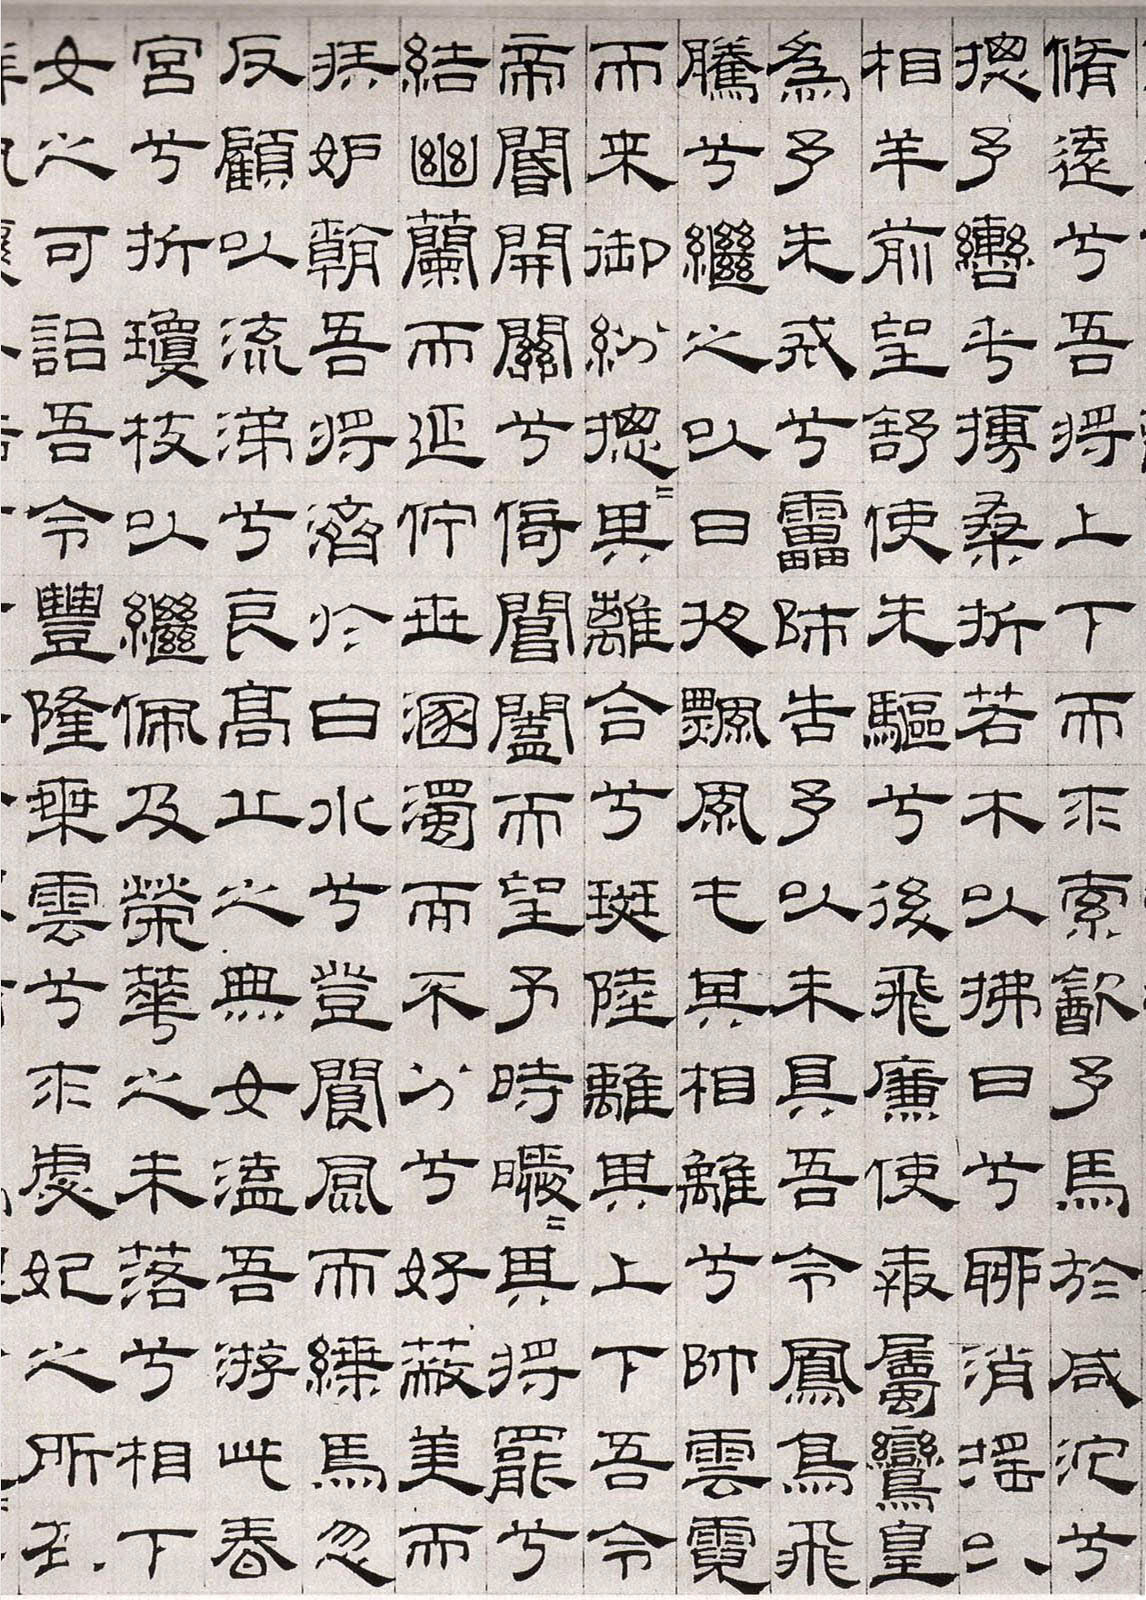 脩遠兮吾將上下而求索㱃予馬於咸沱兮
摠予轡乎搏桑折若木以拂日兮聊消摇以
相羊前望舒使先驅兮後飛廉使奔屬鸞皇
為予先戒兮靁師告予以未具吾令鳳鳥飛
騰兮繼之以日夜飄風屯其相離兮帥雲霓
而来御紛摠=其離合兮斑陸離其上下吾令
帝閽開關兮倚閶闔而望予時曖=其將罷兮
結幽蘭而延佇世溷濁而不分兮好蔽美而
疾妒朝吾將濟於白水兮登閬風而緤馬忽
反顧以流涕兮哀高丘之無女溘吾游此春
宮兮折瓊枝以繼佩及榮華之未落兮相下
女之可詒吾令豐隆乘雲兮求虙妃之所在